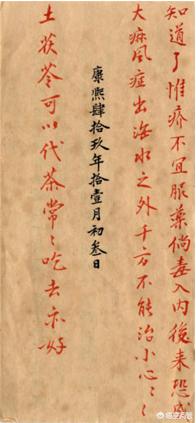 知道了惟疥不宜服藥倘毒入内後来恐成
大麻风症出海水之外千方不能治小心〻〻
土茯苓可以代茶常〻吃去亦好
康熙肆拾玖年拾壹月初叁日